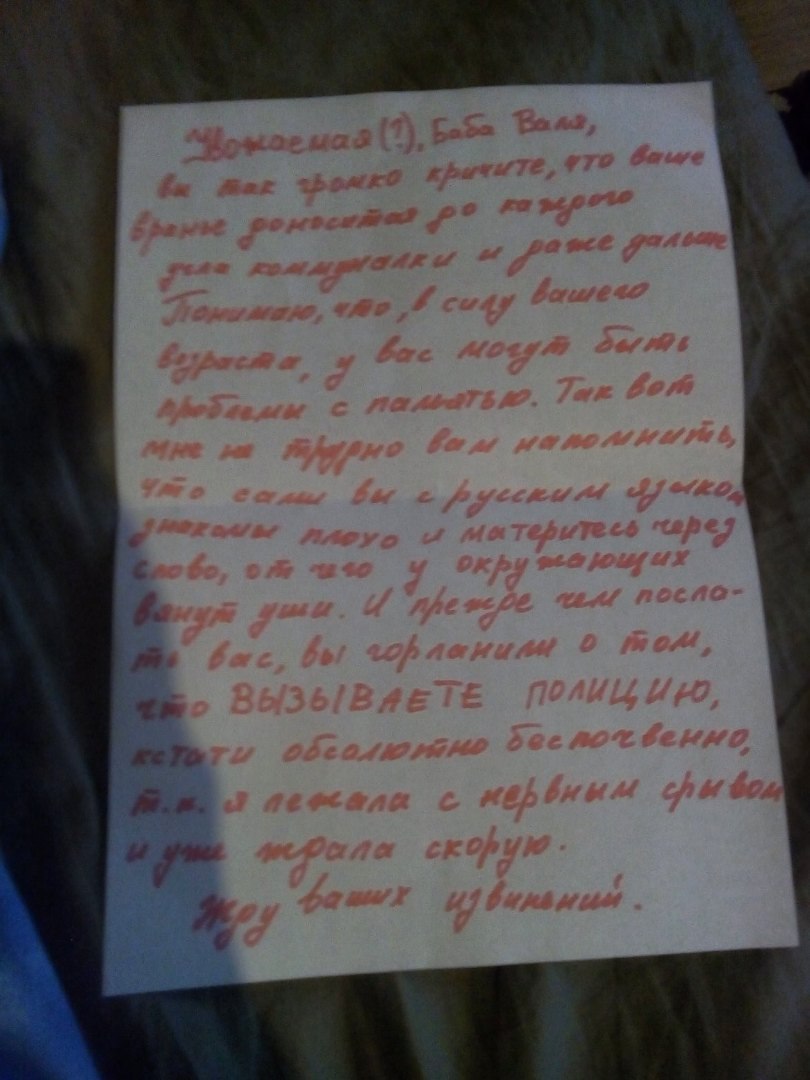 Уважаемая (?), Баба Валя,
вы так громко кричите, что ваше
вранье доносится до каждого
угла коммуналки и даже дальше
Понимаю, что, в силу вашего
возраста, у вас могут быть
проблемы с памятью. Так вот
мне не трудно вам напомнить,
что сами вы с русским языком
знакомы плохо и материтесь через
слово, от чего у окружающих
вянут уши. И прежде чем посла-
ть вас, вы горланили о том,
что ВЫЗЫВАЕТЕ ПОЛИЦИЮ,
кстати обсолютно беспочвенно,
т.к. я лежала с нервным срывом
и уже ждала скорую.
Жду ваших извинений.